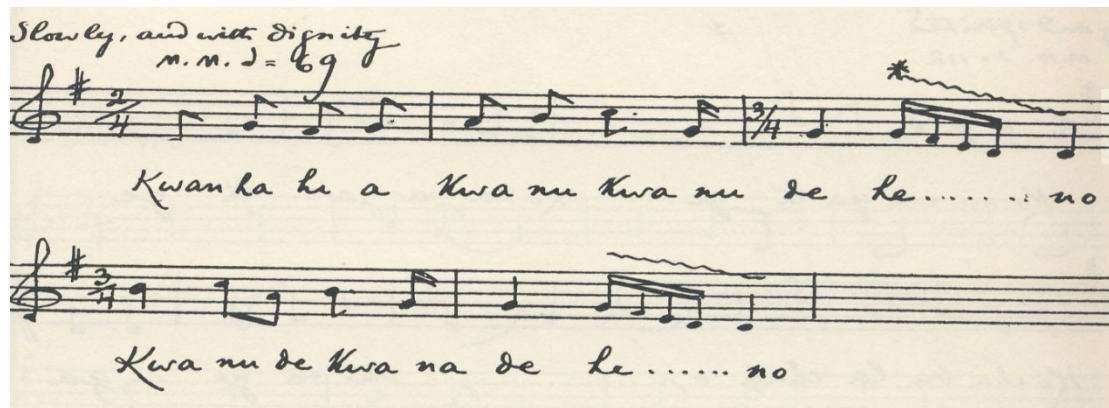 Slowly, and with dignity
M.M. ♩= 69
2/4
3/4
*
Kwan ha hi a Kwa nu Kwa nu de he........ no
3/4
Kwa nu de Kwa na de he....... no